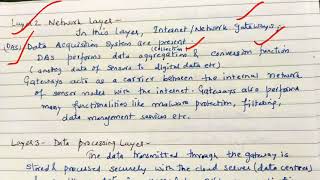 Layer 2 Network Layer -
In this layer, Internet/Network Gateways
(DAS) Data Acquisition System are present.
(collection)
DAS performs data aggregation & conversion function
(analog data of sensors to digital data etc)
Gateways acts as a carrier between the internal network
of sensor nodes with the internet. Gateways also performs
many functionalities like malware protection, filtering,
data management services etc.
Layer 3 - Data processing Layer -
The data transmitted through the gateway is
stored & processed securely with the cloud server (data centres)